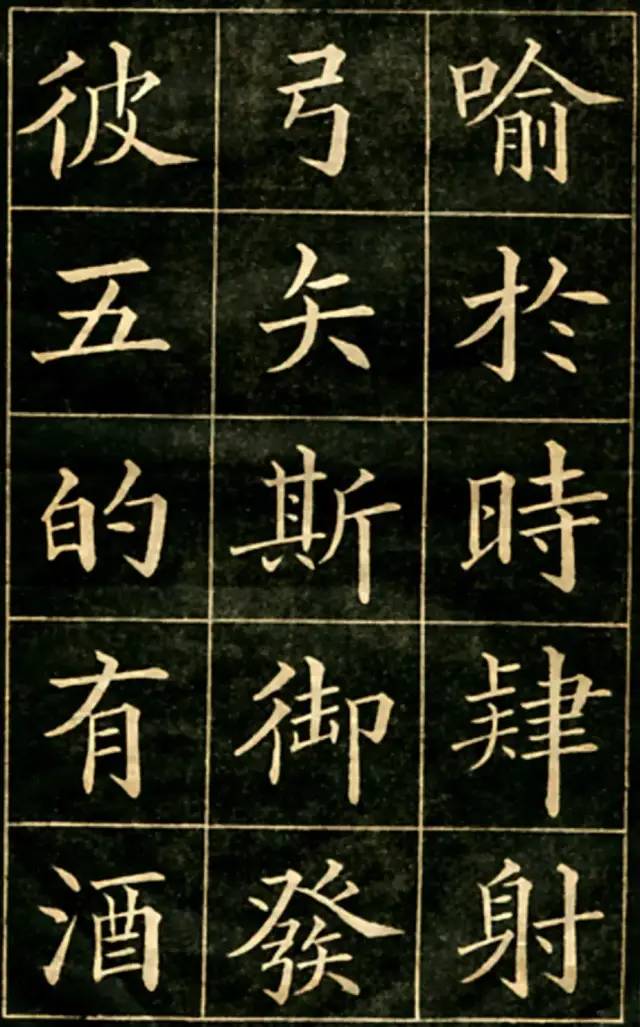 喻於時肄射
弓矢斯御發
彼五的有酒